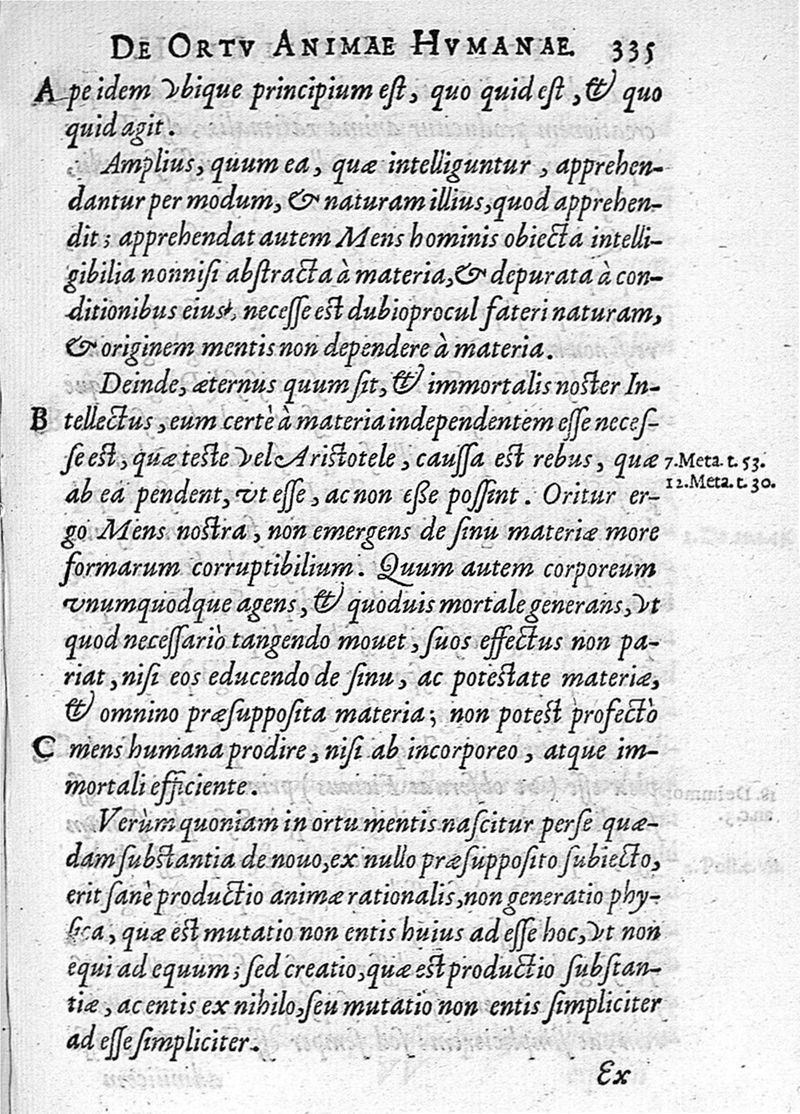 DE ORTV ANIMAE HVMANAE. 335
A pe idem vbique principium eſt, quo quid eſt, & quo
quid agit.
Amplius, quum ea, quæ intelliguntur, apprehen-
dantur per modum, & naturam illius, quod apprehen-
dit; apprehendat autem Mens hominis obiecta intelli-
gibilia nonniſi abſtracta à materia, & depurata à con-
ditionibus eius, neceſſe eſt dubioprocul fateri naturam,
& originem mentis non dependere à materia.
Deinde, æternus quum ſit, & immortalis noſter In-
B tellectus, eum certè à materia independentem eſſe neceſ-
ſe eſt, quæ teſte vel Ariſtotele, cauſſa eſt rebus, quæ 7. Meta. t. 53.
ab ea pendent, vt eſſe, ac non eſſe poſſint. Oritur er- 12. Meta. t. 30.
go Mens noſtra, non emergens de ſinu materiæ more
formarum corruptibilium. Quum autem corporeum
vnumquodque agens, & quoduis mortale generans, vt
quod neceſſariò tangendo mouet, ſuos effectus non pa-
riat, niſi eos educendo de ſinu, ac poteſtate materiæ,
& omnino præſuppoſita materia; non poteſt profectò
C mens humana prodire, niſi ab incorporeo, atque im-
mortali efficiente.
Verùm quoniam in ortu mentis naſcitur per ſe quæ-
dam ſubſtantia de nouo, ex nullo præſuppoſito ſubiecto,
erit ſanè productio animæ rationalis, non generatio phy-
ſica, quæ eſt mutatio non entis huius ad eſſe hoc, vt non
equi ad equum; ſed creatio, quæ eſt productio ſubſtan-
tiæ, ac entis ex nihilo, ſeu mutatio non entis ſimpliciter
ad eſſe ſimpliciter.
Ex